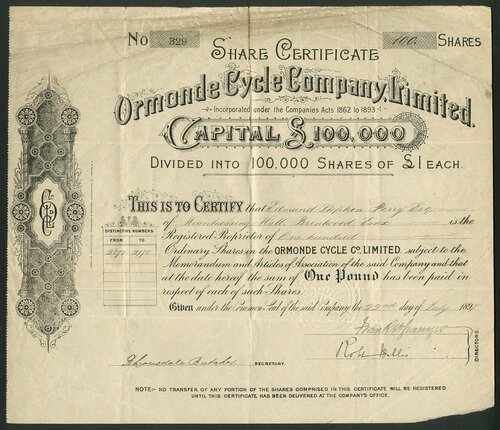 No 329 100. SHARES
SHARE CERTIFICATE
Ormonde Cycle Company, Limited.
Incorporated under the Companies Acts 1862 to 1893
CAPITAL £100,000
DIVIDED INTO 100,000 SHARES OF £1 EACH.
THIS IS TO CERTIFY that Edmund Stephen Esq
of Hall Brentwood Essex is the
DISTINCTIVE NUMBERS Registered Proprietor of One Hundred
FROM TO Ordinary Shares in the ORMONDE CYCLE CO. LIMITED. subject to the
Memorandum and Articles of Association of the said Company and that
at the date hereof the sum of One Pound has been paid in
respect of each of such Shares.
Given under the Common Seal of the said Company the 22nd day of July 189
SECRETARY.
DIRECTORS.
NOTE:- NO TRANSFER OF ANY PORTION OF THE SHARES COMPRISED IN THIS CERTIFICATE WILL BE REGISTERED
UNTIL THIS CERTIFICATE HAS BEEN DELIVERED AT THE COMPANY'S OFFICE.